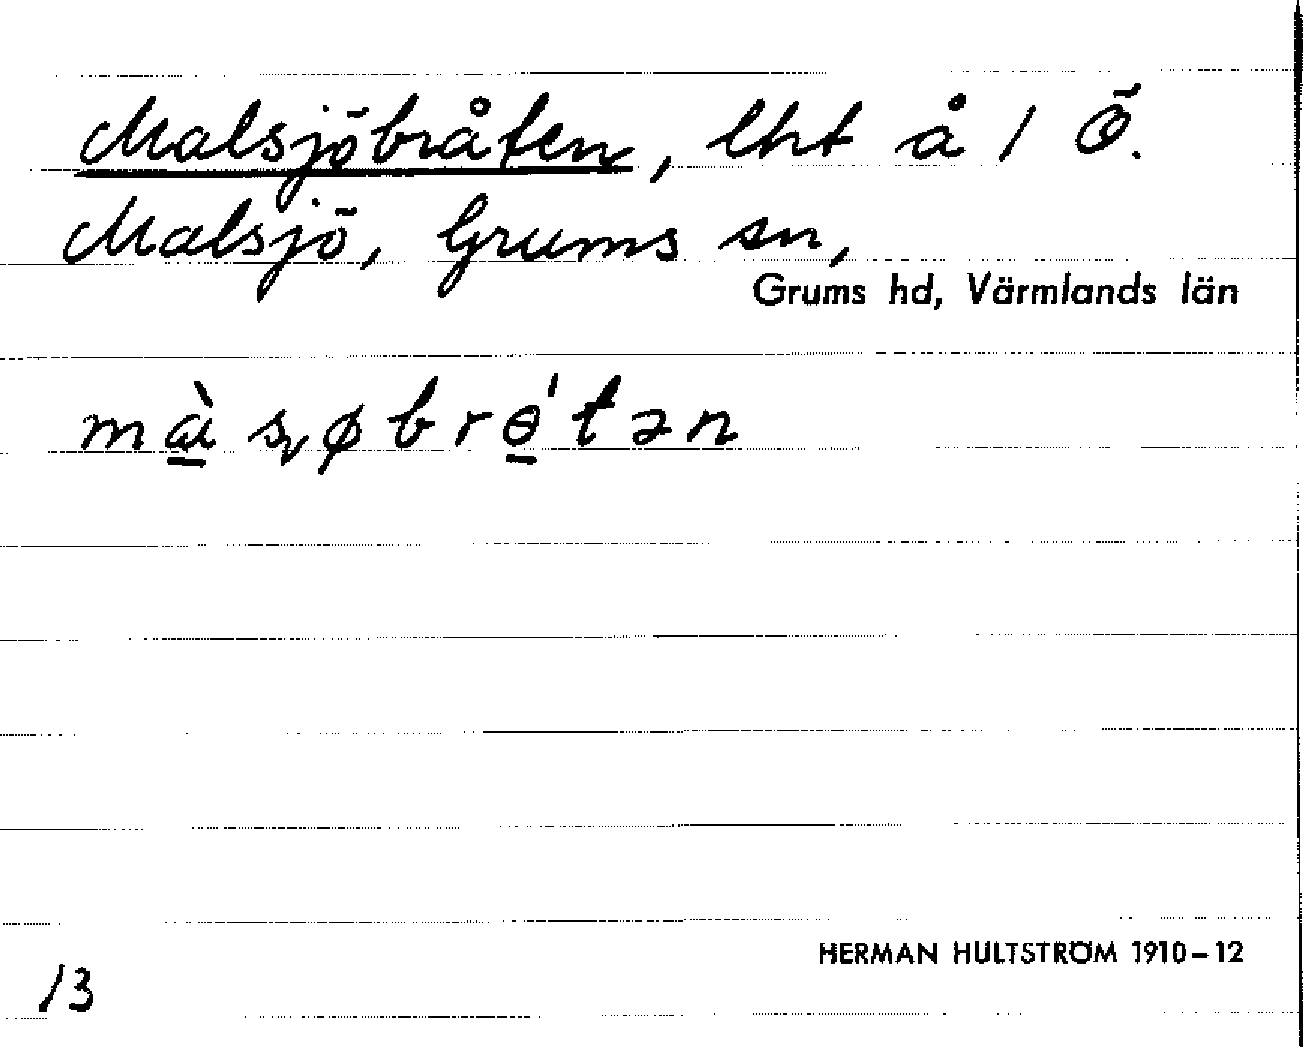 Malsjöbråten, lht å 1 Ö.
Malsjö, Grums sn,
Grums hd, Värmlands län
HERMAN HULTSTRÖM 1910-12
13